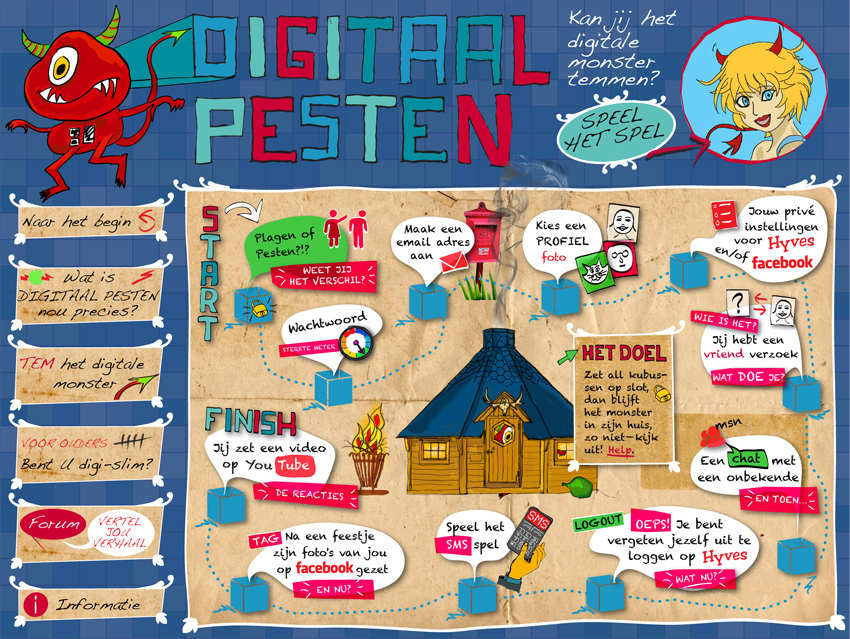 DIGITAAL
PESTEN
Kan jij het
digitale
monster
temmen?
SPEEL
HET SPEL
Naar het begin
Wat is
DIGITAAL PESTEN
nou precies?
TEM het digitale
monster
VOOR OUDERS
Bent U digi-slim?
Forum
VERTEL
JOU
VERHAAL
i Informatie
START
Plagen of
Pesten?!?
WEET JIJ
HET VERSCHIL?
Maak een
email adres
aan
Kies een
PROFIEL
foto
Jouw privé
instellingen
voor Hyves
en/of facebook
Wachtwoord
STERKTE METER
WIE IS HET?
?
Jij hebt een
vriend verzoek
WAT DOE JE?
HET DOEL
Zet all kubus-
sen op slot,
dan blijft
het monster
in zijn huis,
zo niet-kijk
uit! Help.
msn
Een chat met
een onbekende
EN TOEN...
FINISH
Jij zet een video
op You Tube
DE REACTIES
TAG Na een feestje
zijn foto's van jou
op facebook gezet
EN NU?
Speel het
SMS spel
SMS
LOGOUT OEPS! Je bent
vergeten jezelf uit te
loggen op Hyves
WAT NU?